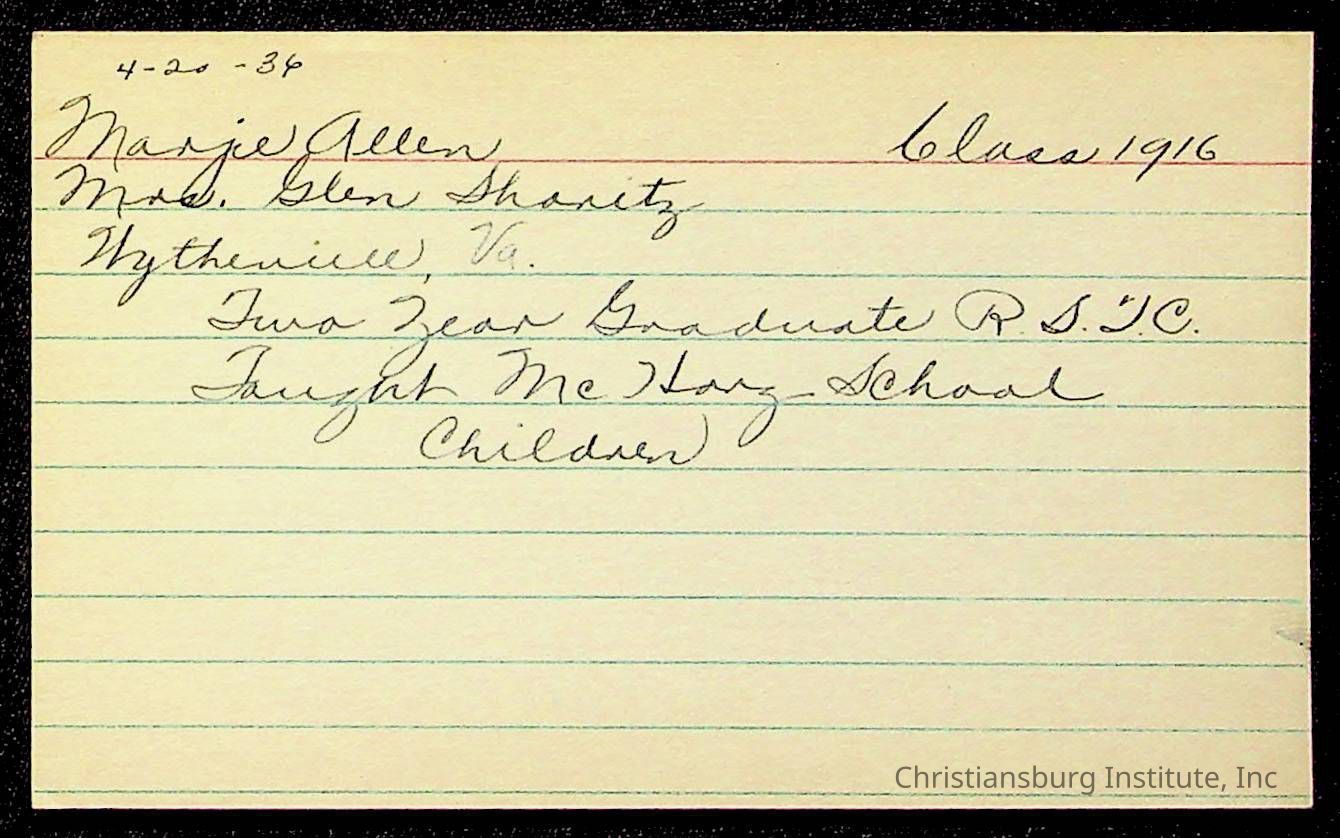 4-20-36
Marje Allen Class 1916
Mrs. Glen Sharitz
Wytheville, Va.
Two Year Graduate R.S.T.C.
Taught Mc Harg School
Children
Christiansburg Institute, Inc